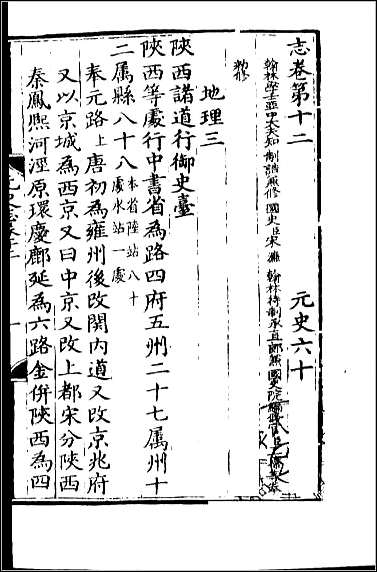 志卷第十二 元史六十
翰林學士亞中大夫知 制誥兼修 國史臣宋 濂 翰林待制承直郎兼 國史院編修官臣
勑修
地理三
陝西諸道行御史臺
陝西等處行中書省爲路四府五州二十七屬州十
二屬縣八十八本省陸站八十處水站一處
奉元路上唐初爲雍州後改關內道又改京兆府
又以京城爲西京又曰中京又改上都宋分陝西
秦鳳熙河涇原環慶鄜延爲六路金併陝西爲四